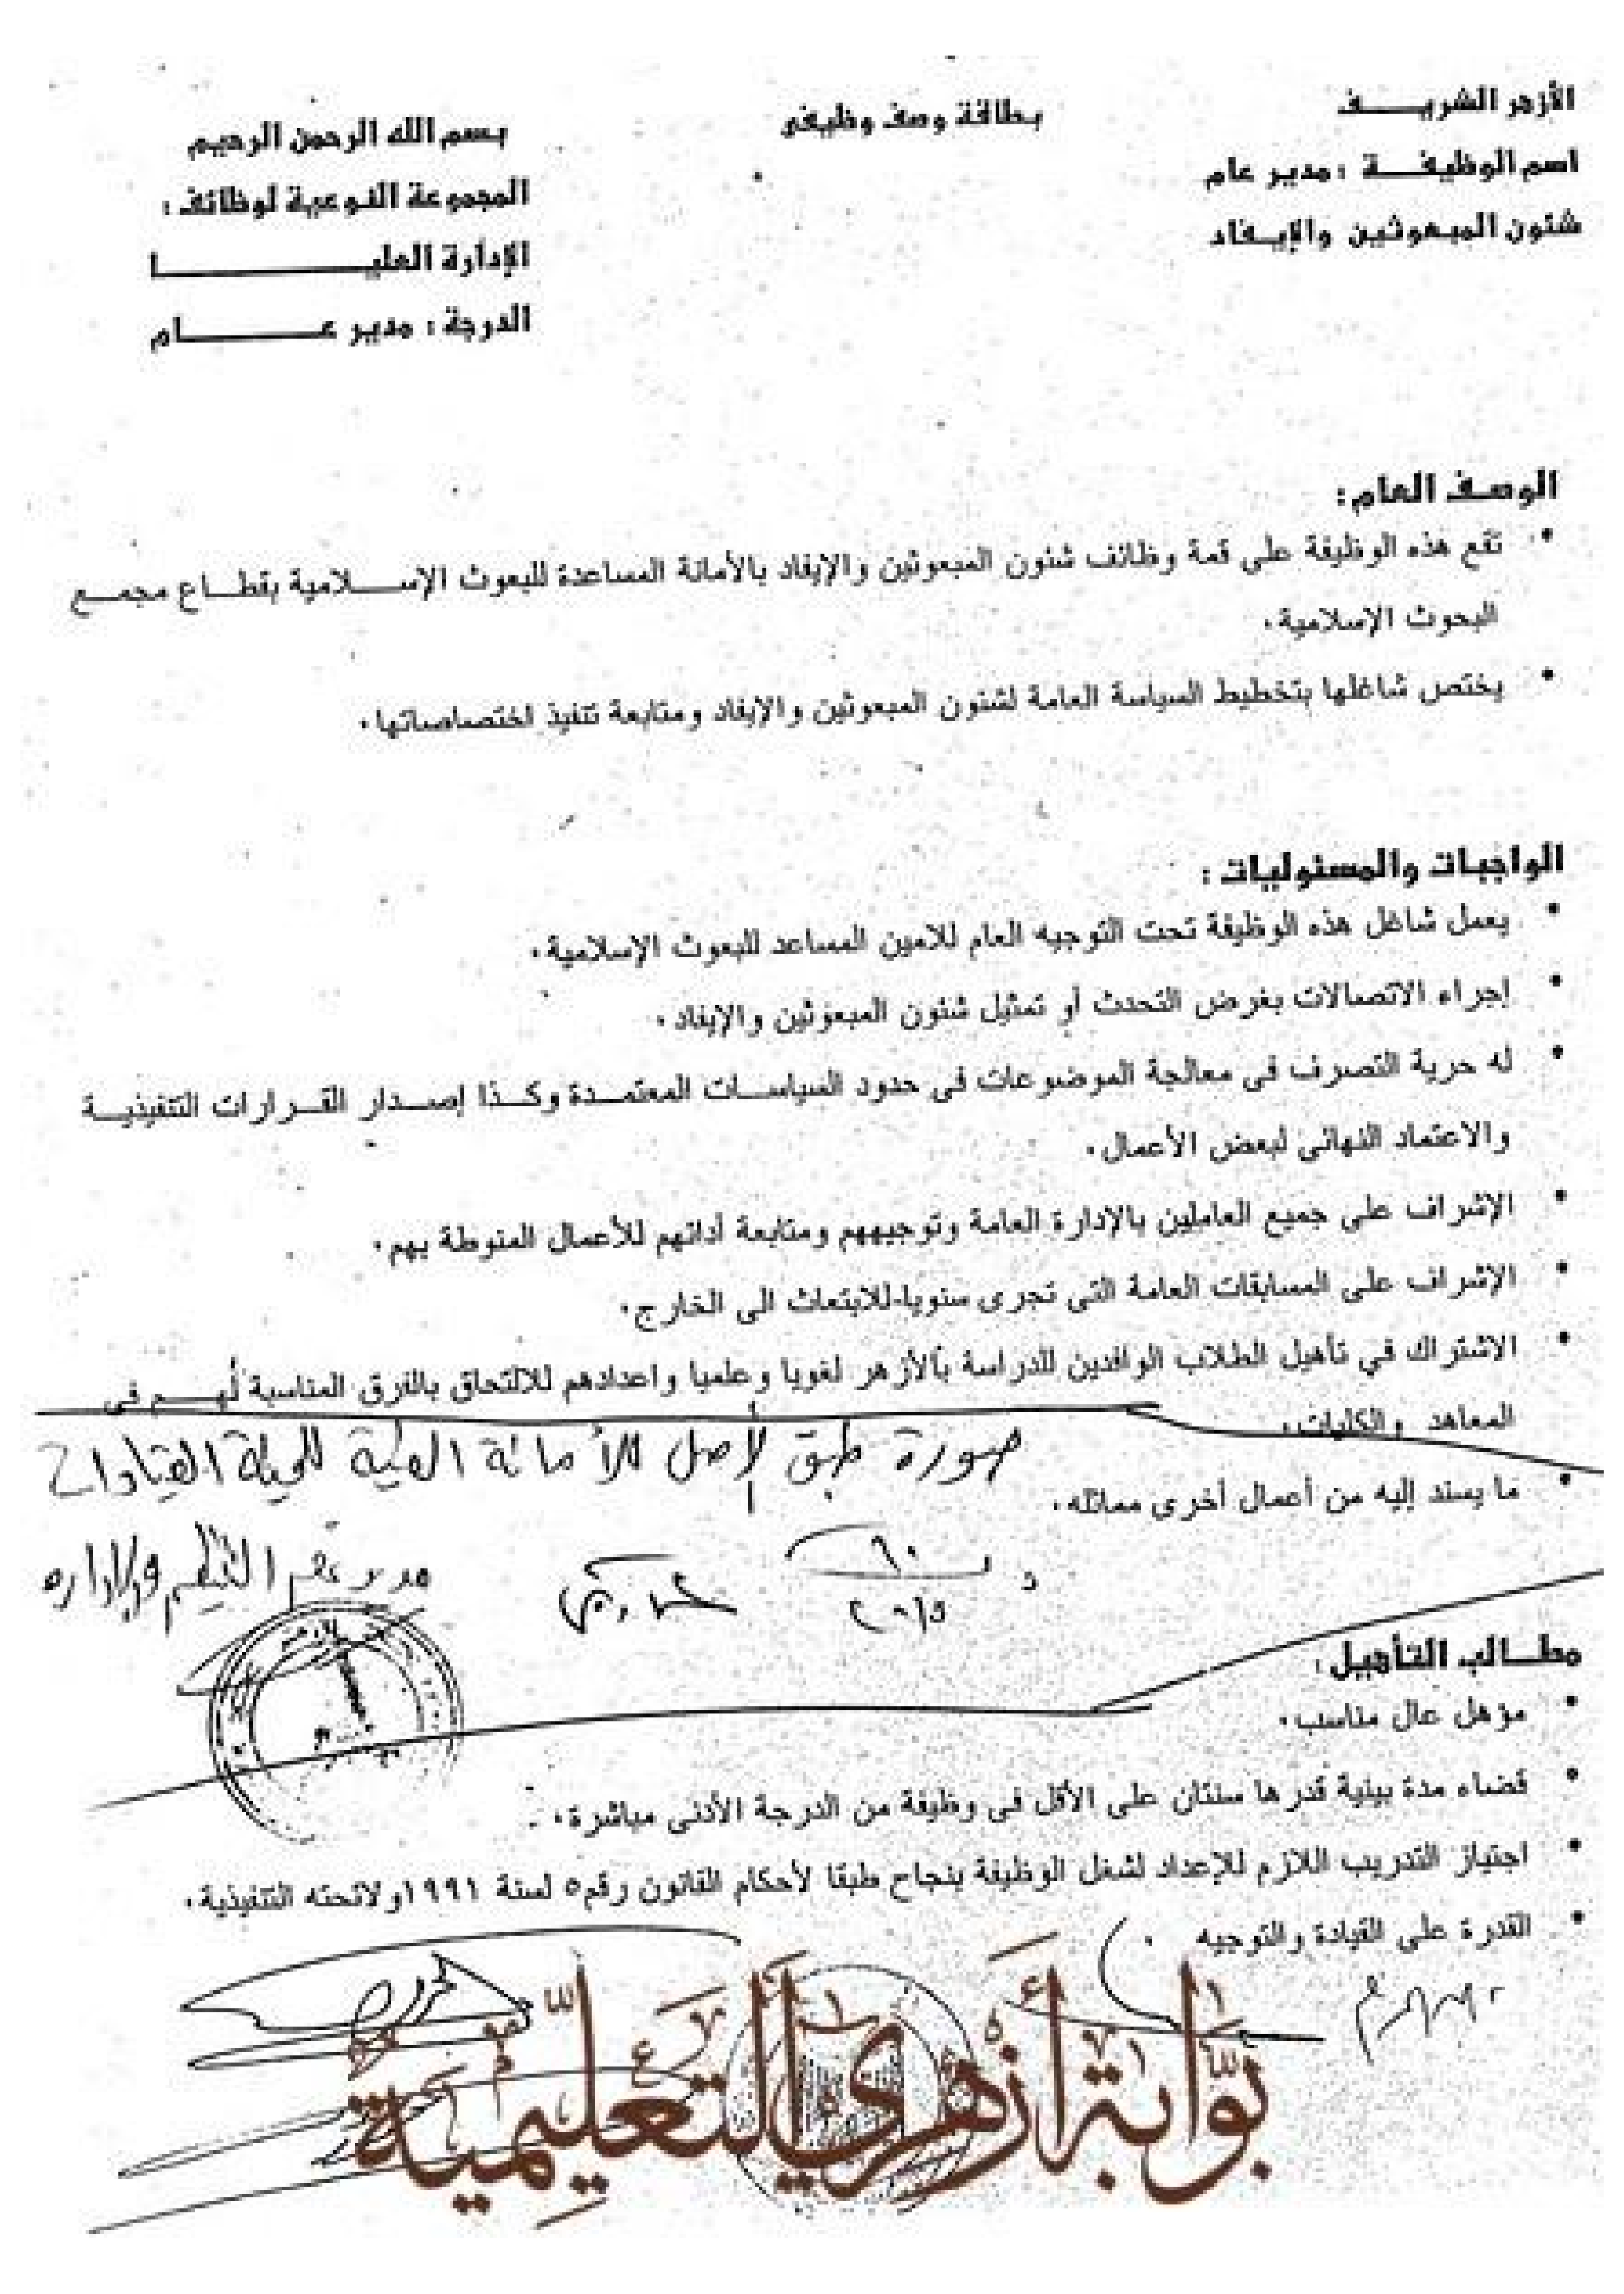 الأزهر الشريـــف
بطاقة وصف وظيفى
بسم الله الرحمن الرحيم
اسم الوظيفـــة : مدير عام
المجموعة النوعية لوظائف :
شئون المبعوثين والإيـفاد
الإدارة العليـــــــــا
الدرجة : مدير عـــــــام
الوصـف العام :
• تقع هذه الوظيفة على قمة وظائف شئون المبعوثين والإيفاد بالأمانة المساعدة للبعوث الإســـلامية بقطـــاع مجمـــع
البحوث الإسلامية .
• يختص شاغلها بتخطيط السياسة العامة لشئون المبعوثين والإيفاد ومتابعة تنفيذ اختصاصاتها .
الواجبات والمسئوليات :
• يعمل شاغل هذه الوظيفة تحت التوجيه العام للامين المساعد للبعوث الإسلامية .
• إجراء الاتصالات بغرض التحدث أو تمثيل شئون المبعوثين والإيفاد .
• له حرية التصرف فى معالجة الموضوعات فى حدود السياســات المعتمــدة وكــذا إصــدار القــرارات التنفيذيــة
والاعتماد النهائى لبعض الأعمال .
• الإشراف على جميع العاملين بالإدارة العامة وتوجيههم ومتابعة أدائهم للأعمال المنوطة بهم .
• الإشراف على المسابقات العامة التى تجرى سنويا للابتعاث الى الخارج .
• الاشتراك في تأهيل الطلاب الوافدين للدراسة بالأزهر لغويا وعلميا واعدادهم للالتحاق بالفرق المناسبة لهـــم فى
المعاهد والكليات .
صورة طبق لأصل للأمانة الفنية للجنة القيادات
• ما يسند إليه من أعمال أخرى مماثله .
مدير عام التنظيم والإدارة
مطـــالب التأهيل :
• مؤهل عال مناسب .
• قضاء مدة بينية قدرها سنتان على الأقل فى وظيفة من الدرجة الأدنى مباشرة .
• اجتياز التدريب اللازم للإعداد لشغل الوظيفة بنجاح طبقا لأحكام القانون رقم٥ لسنة ١٩٩١ولائحته التنفيذية .
• القدرة على القيادة والتوجيه .
بوابة أزهري التعليمية